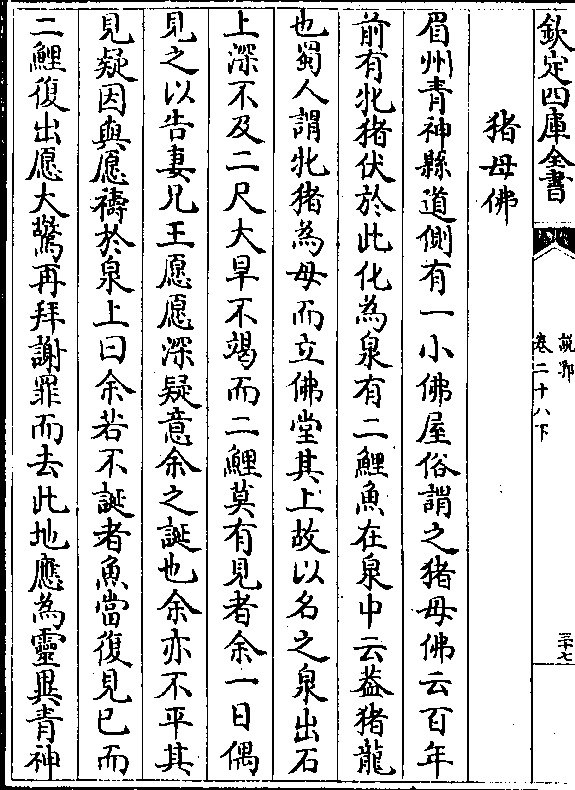 欽定四庫全書
說郛
卷二十八下
三十七
猪母佛
眉州青神縣道側有一小佛屋俗謂之猪母佛云百年
前有牝猪伏於此化為泉有二鯉魚在泉中云葢猪龍
也蜀人謂牝猪為母而立佛堂其上故以名之泉出石
上深不及二尺大旱不竭而二鯉莫有見者余一日偶
見之以告妻兄王愿愿深疑意余之誕也余亦不平其
見疑因與愿禱於泉上曰余若不誕者魚當復見已而
二鯉復出愿大驚再拜謝罪而去此地應為靈異青神